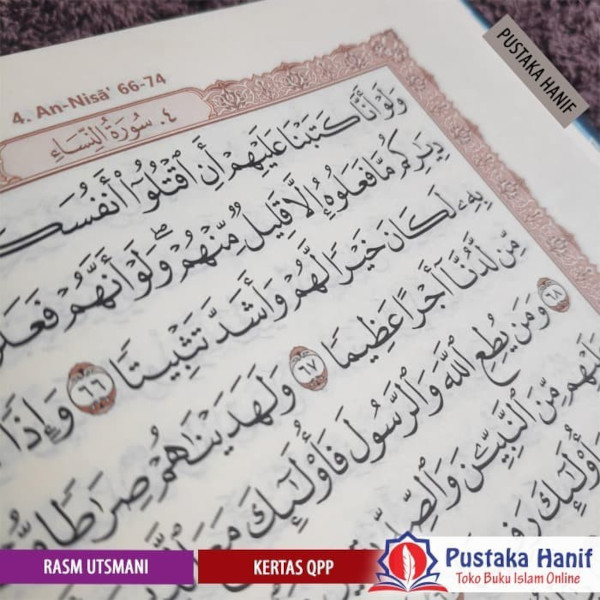 PUSTAKA HANIF
4. An-Nisā' 66-74
٤. سُورَةُ النِّسَاءِ
وَلَوْ أَنَّا كَتَبْنَا عَلَيْهِمْ أَنِ ٱقْتُلُوٓا۟ أَنفُسَكُ
دِيَـٰرِكُم مَّا فَعَلُوهُ إِلَّا قَلِيلٌ مِّنْهُمْ ۖ وَلَوْ أَنَّهُمْ فَعَلُ
بِهِۦ لَكَانَ خَيْرًا لَّهُمْ وَأَشَدَّ تَثْبِيتًا ٦٦ وَإِذًا
مِّن لَّدُنَّآ أَجْرًا عَظِيمًا ٦٧ وَلَهَدَيْنَـٰهُمْ صِرَٰطًا
٦٨ وَمَن يُطِعِ ٱللَّهَ وَٱلرَّسُولَ فَأُو۟لَـٰٓئِكَ مَعَ
مِّنَ ٱلنَّبِيِّـۧنَ وَٱلصِّ
أُو۟لَـٰٓئِكَ رَفِ
RASM UTSMANI
KERTAS QPP
Pustaka Hanif
Toko Buku Islam Online